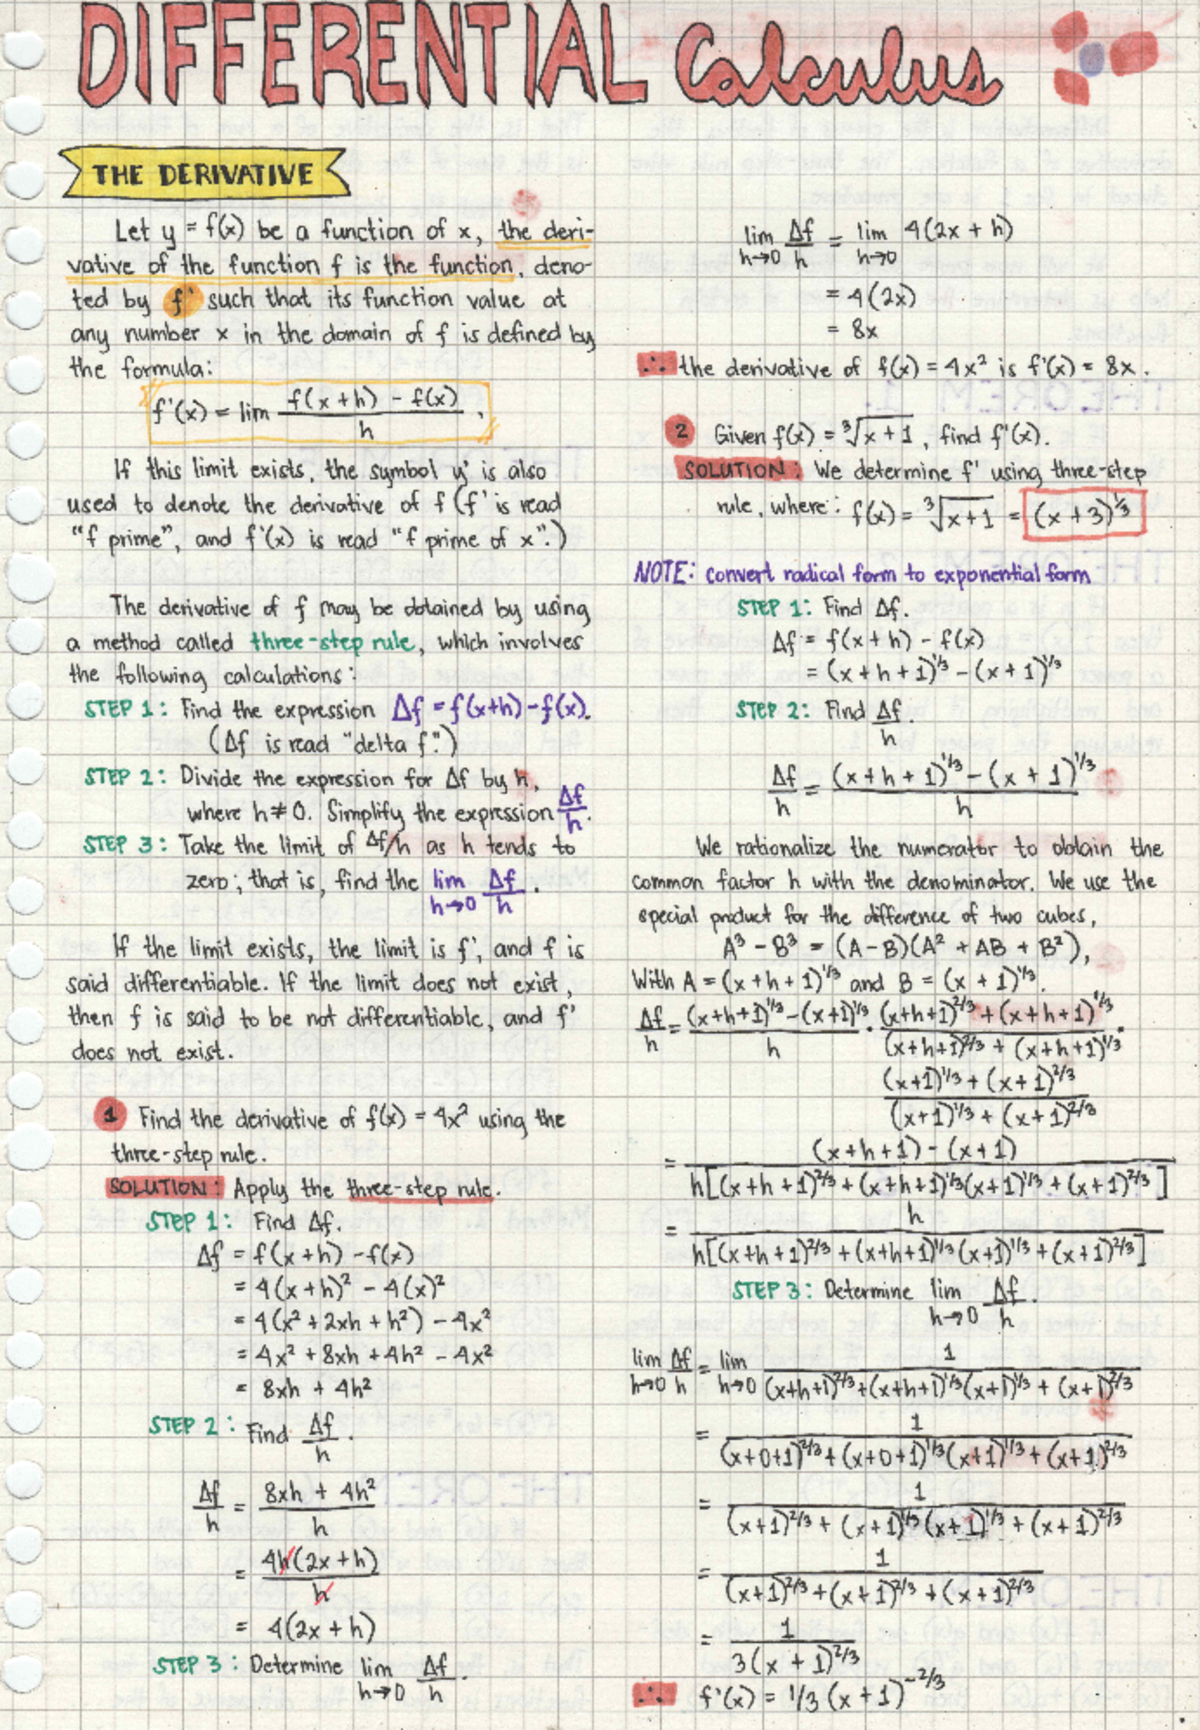 DIFFERENTIAL Calculus
THE DERIVATIVE
Let y = f(x) be a function of x, the deri-
vative of the function f is the function, deno-
ted by f' such that its function value at
any number x in the domain of f is defined by
the formula:
f'(x) = lim (f(x+h) - f(x))/h .
If this limit exists, the symbol y' is also
used to denote the derivative of f (f' is read
"f prime", and f'(x) is read "f prime of x".)
The derivative of f may be obtained by using
a method called three-step rule, which involves
the following calculations:
STEP 1: Find the expression Δf = f(x+h) - f(x).
(Δf is read "delta f".)
STEP 2: Divide the expression for Δf by h,
where h ≠ 0. Simplify the expression Δf/h.
STEP 3: Take the limit of Δf/h as h tends to
zero; that is, find the lim h→0 Δf/h .
If the limit exists, the limit is f', and f is
said differentiable. If the limit does not exist,
then f is said to be not differentiable, and f'
does not exist.
1 Find the derivative of f(x) = 4x² using the
three-step rule.
SOLUTION: Apply the three-step rule.
STEP 1: Find Δf.
Δf = f(x+h) - f(x)
= 4(x+h)² - 4(x)²
= 4(x² + 2xh + h²) - 4x²
= 4x² + 8xh + 4h² - 4x²
= 8xh + 4h²
STEP 2: Find Δf/h .
Δf/h = (8xh + 4h²)/h
= 4h(2x+h)/h
= 4(2x+h)
STEP 3: Determine lim h→0 Δf/h .
lim h→0 Δf/h = lim h→0 4(2x+h)
= 4(2x)
= 8x
∴ the derivative of f(x) = 4x² is f'(x) = 8x.
2 Given f(x) = ³√(x+1), find f'(x).
SOLUTION: We determine f' using three-step
rule, where: f(x) = ³√(x+1) = (x+3)^1/3
NOTE: convert radical form to exponential form
STEP 1: Find Δf.
Δf = f(x+h) - f(x)
= (x+h+1)^1/3 - (x+1)^1/3
STEP 2: Find Δf/h.
Δf/h = ((x+h+1)^1/3 - (x+1)^1/3)/h
We rationalize the numerator to obtain the
common factor h with the denominator. We use the
special product for the difference of two cubes,
A³ - B³ = (A-B)(A² + AB + B²),
With A = (x+h+1)^1/3 and B = (x+1)^1/3.
Δf/h = ((x+h+1)^1/3 - (x+1)^1/3)/h · ((x+h+1)^2/3 + (x+h+1)^1/3)/((x+h+1)^2/3 + (x+h+1)^1/3) ·
((x+1)^1/3 + (x+1)^2/3)/((x+1)^1/3 + (x+1)^2/3)
= ((x+h+1) - (x+1))/(h[(x+h+1)^2/3 + (x+h+1)^1/3(x+1)^1/3 + (x+1)^2/3])
= h/(h[(x+h+1)^2/3 + (x+h+1)^1/3(x+1)^1/3 + (x+1)^2/3])
STEP 3: Determine lim h→0 Δf/h .
lim h→0 Δf/h = lim h→0 1/((x+h+1)^2/3 + (x+h+1)^1/3(x+1)^1/3 + (x+1)^2/3)
= 1/((x+0+1)^2/3 + (x+0+1)^1/3(x+1)^1/3 + (x+1)^2/3)
= 1/((x+1)^2/3 + (x+1)^1/3(x+1)^1/3 + (x+1)^2/3)
= 1/((x+1)^2/3 + (x+1)^2/3 + (x+1)^2/3)
= 1/(3(x+1)^2/3)
∴ f'(x) = 1/3 (x+1)^-2/3